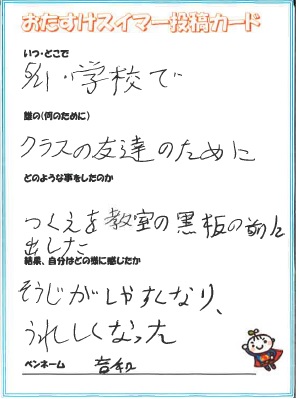 おたすけスイマー投稿カード
いつ・どこで
5/21・学校で
誰の(何のために)
クラスの友達のために
どのような事をしたのか
つくえを教室の黒板の前に
出した
結果、自分はどの様に感じたか
そうじがしやすくなり、
うれしくなった
ペンネーム